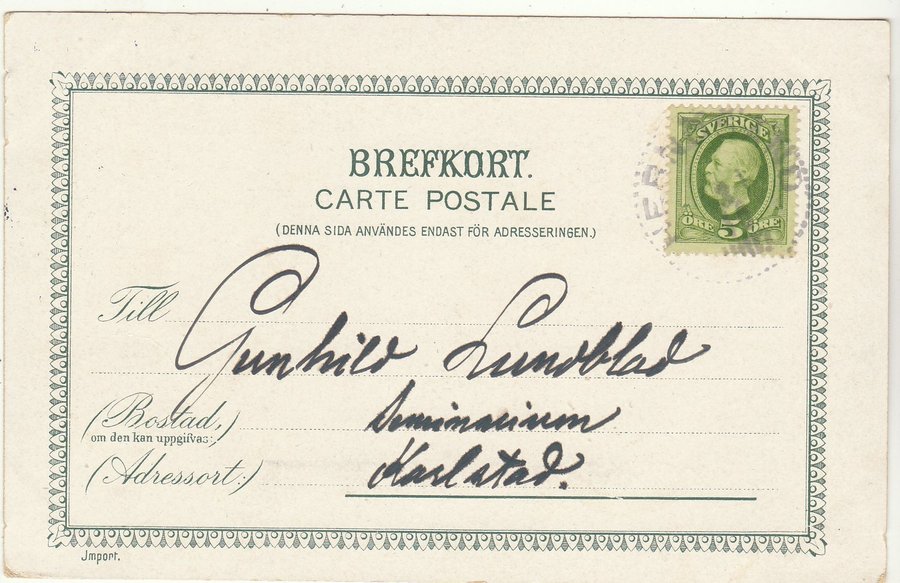 BREFKORT.
CARTE POSTALE
(DENNA SIDA ANVÄNDES ENDAST FÖR ADRESSERINGEN.)
SVERIGE
ÖRE 5 ÖRE
Till
Gunhild Lundblad
(Bostad,
om den kan uppgifvas:)
Seminarium
(Adressort:)
Karlstad.
Import.